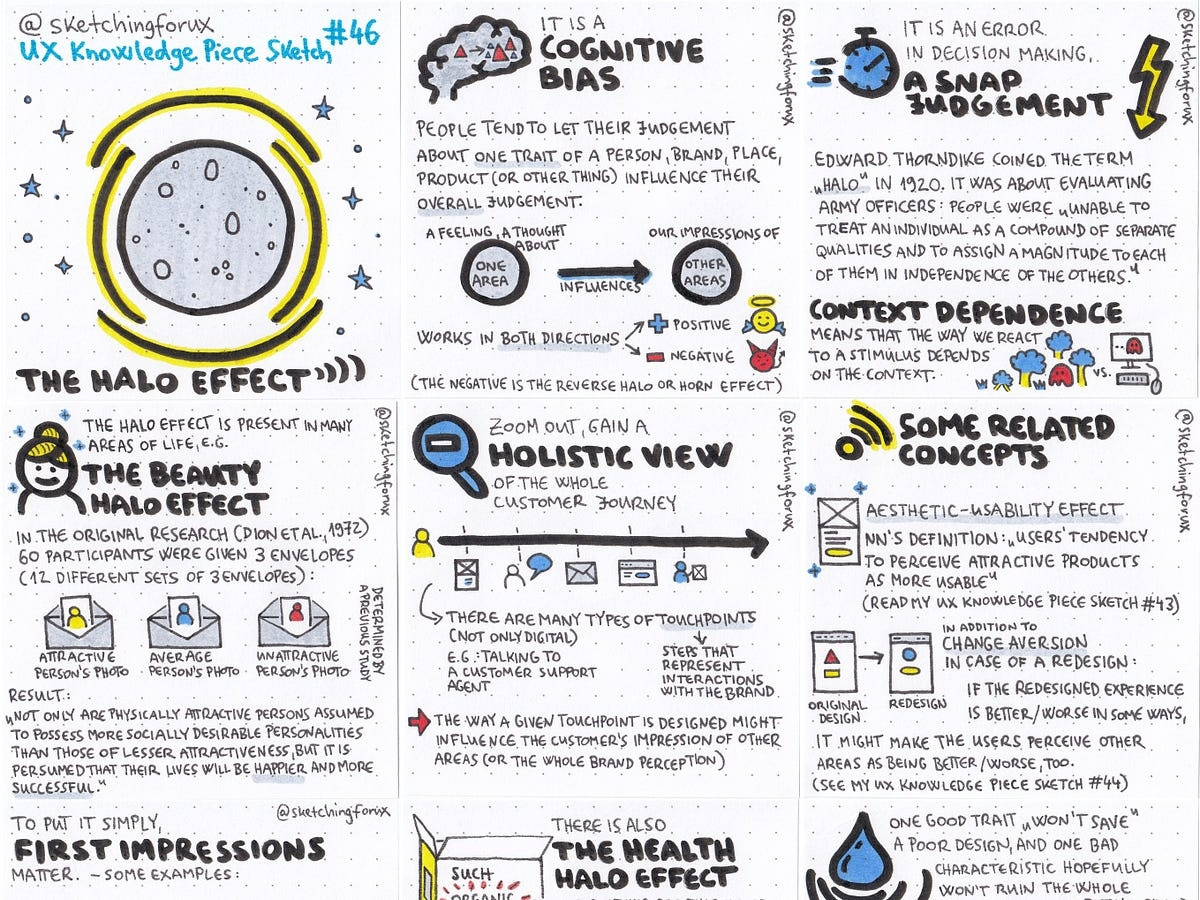 @sketchingforux
#46
UX Knowledge Piece Sketch
THE HALO EFFECT
IT IS A
COGNITIVE
BIAS
@sketchingforux
PEOPLE TEND TO LET THEIR JUDGEMENT
ABOUT ONE TRAIT OF A PERSON, BRAND, PLACE,
PRODUCT (OR OTHER THING) INFLUENCE THEIR
OVERALL JUDGEMENT.
A FEELING, A THOUGHT
ABOUT
ONE
AREA
INFLUENCES
OUR IMPRESSIONS OF
OTHER
AREAS
WORKS IN BOTH DIRECTIONS
POSITIVE
NEGATIVE
(THE NEGATIVE IS THE REVERSE HALO OR HORN EFFECT)
IT IS AN ERROR
IN DECISION MAKING,
A SNAP
JUDGEMENT
@sketchingforux
EDWARD THORNDIKE COINED THE TERM
„HALO" IN 1920. IT WAS ABOUT EVALUATING
ARMY OFFICERS: PEOPLE WERE „UNABLE TO
TREAT AN INDIVIDUAL AS A COMPOUND OF SEPARATE
QUALITIES AND TO ASSIGN A MAGNITUDE TO EACH
OF THEM IN INDEPENDENCE OF THE OTHERS."
CONTEXT DEPENDENCE
MEANS THAT THE WAY WE REACT
TO A STIMULUS DEPENDS
ON THE CONTEXT.
VS.
THE HALO EFFECT IS PRESENT IN MANY
AREAS OF LIFE, E.G.
THE BEAUTY
HALO EFFECT
@sketchingforux
IN THE ORIGINAL RESEARCH (DION ET AL., 1972)
60 PARTICIPANTS WERE GIVEN 3 ENVELOPES
(12 DIFFERENT SETS OF 3 ENVELOPES):
ATTRACTIVE
PERSON'S PHOTO
AVERAGE
PERSON'S PHOTO
UNATTRACTIVE
PERSON'S PHOTO
DETERMINED BY
A PREVIOUS STUDY
RESULT:
„NOT ONLY ARE PHYSICALLY ATTRACTIVE PERSONS ASSUMED
TO POSSESS MORE SOCIALLY DESIRABLE PERSONALITIES
THAN THOSE OF LESSER ATTRACTIVENESS, BUT IT IS
PERSUMED THAT THEIR LIVES WILL BE HAPPIER AND MORE
SUCCESSFUL."
ZOOM OUT, GAIN A
HOLISTIC VIEW
OF THE WHOLE
CUSTOMER JOURNEY
@sketchingforux
THERE ARE MANY TYPES OF TOUCHPOINTS
(NOT ONLY DIGITAL)
E.G.: TALKING TO
A CUSTOMER SUPPORT
AGENT
STEPS THAT
REPRESENT
INTERACTIONS
WITH THE BRAND
THE WAY A GIVEN TOUCHPOINT IS DESIGNED MIGHT
INFLUENCE THE CUSTOMER'S IMPRESSION OF OTHER
AREAS (OR THE WHOLE BRAND PERCEPTION)
SOME RELATED
CONCEPTS
@sketchingforux
AESTHETIC-USABILITY EFFECT
NN'S DEFINITION: „USERS' TENDENCY
TO PERCEIVE ATTRACTIVE PRODUCTS
AS MORE USABLE"
(READ MY UX KNOWLEDGE PIECE SKETCH #43)
ORIGINAL
DESIGN
REDESIGN
IN ADDITION TO
CHANGE AVERSION
IN CASE OF A REDESIGN:
IF THE REDESIGNED EXPERIENCE
IS BETTER/WORSE IN SOME WAYS,
IT MIGHT MAKE THE USERS PERCEIVE OTHER
AREAS AS BEING BETTER/WORSE, TOO.
(SEE MY UX KNOWLEDGE PIECE SKETCH #44)
TO PUT IT SIMPLY,
@sketchingforux
FIRST IMPRESSIONS
MATTER. - SOME EXAMPLES:
SUCH
ORGANIC
THERE IS ALSO
THE HEALTH
HALO EFFECT
ONE GOOD TRAIT „WON'T SAVE"
A POOR DESIGN, AND ONE BAD
CHARACTERISTIC HOPEFULLY
WON'T RUIN THE WHOLE